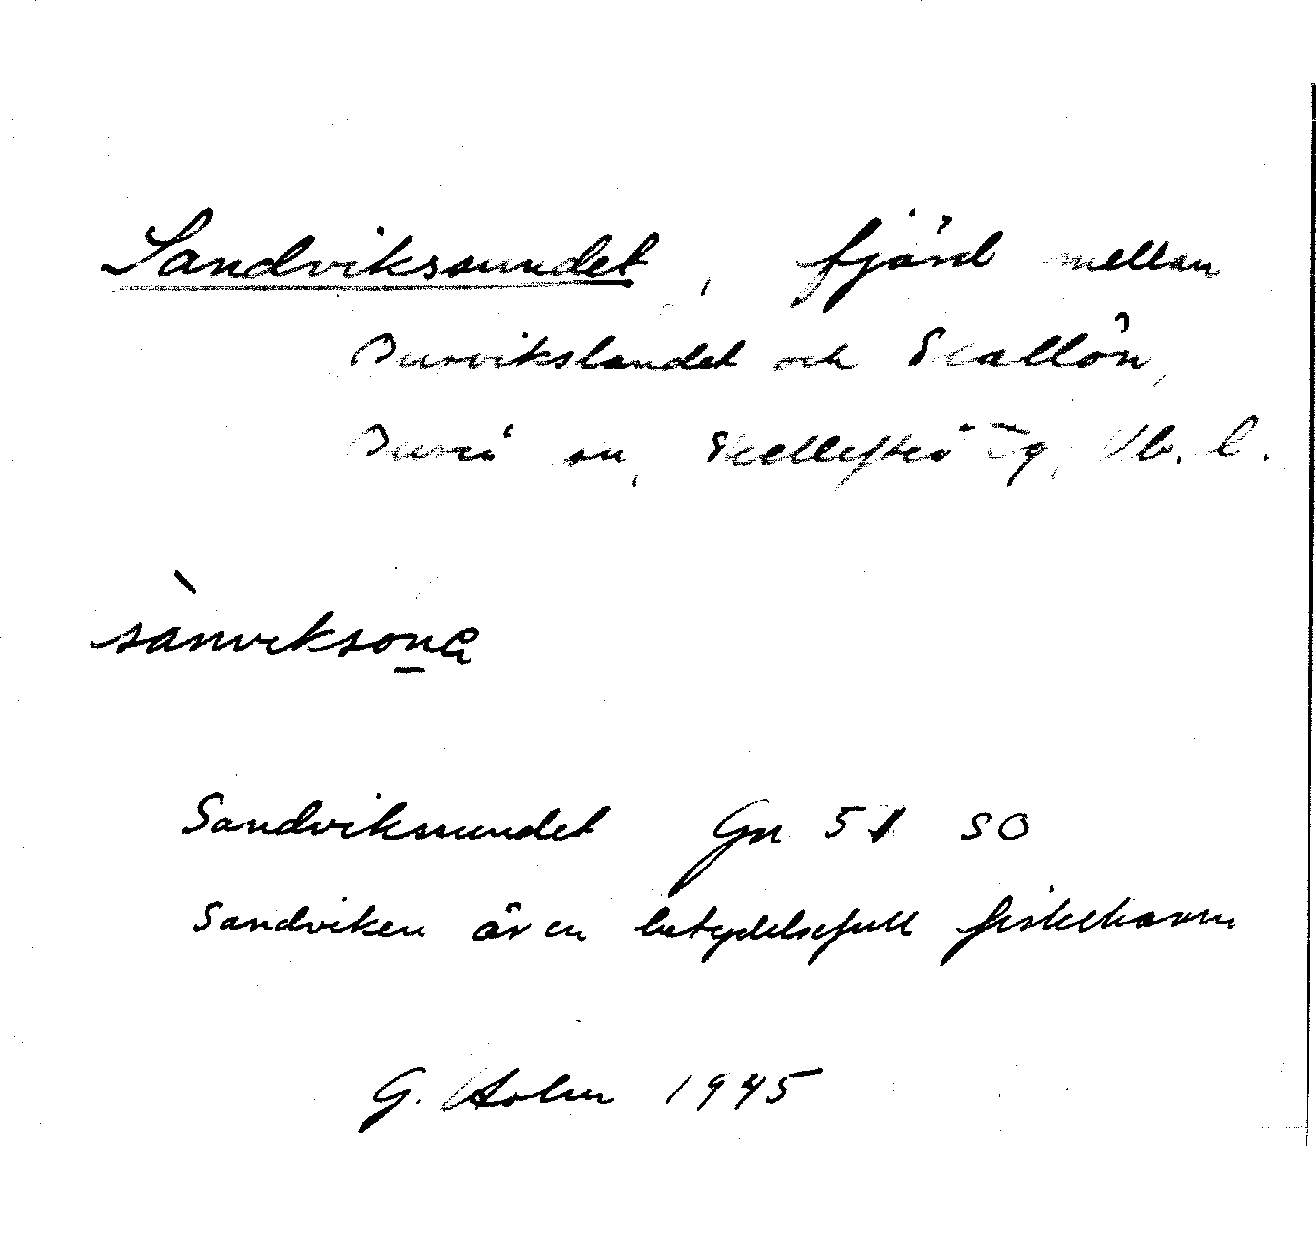 Sandvikssundet, fjärd mellan
Burvikslandet och Skallön,
Bureå sn, Skellefteå tg, Vb. l.
sànviksona
Sandvikssundet Gn 51 SO
Sandviken är en betydelsefull fiskehamn
G. Holm 1945